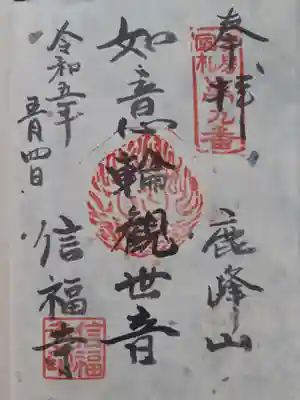 奉拝
第九番
鹿峰山
如意心輪観世音
信福寺
令和五年
五月四日
信福